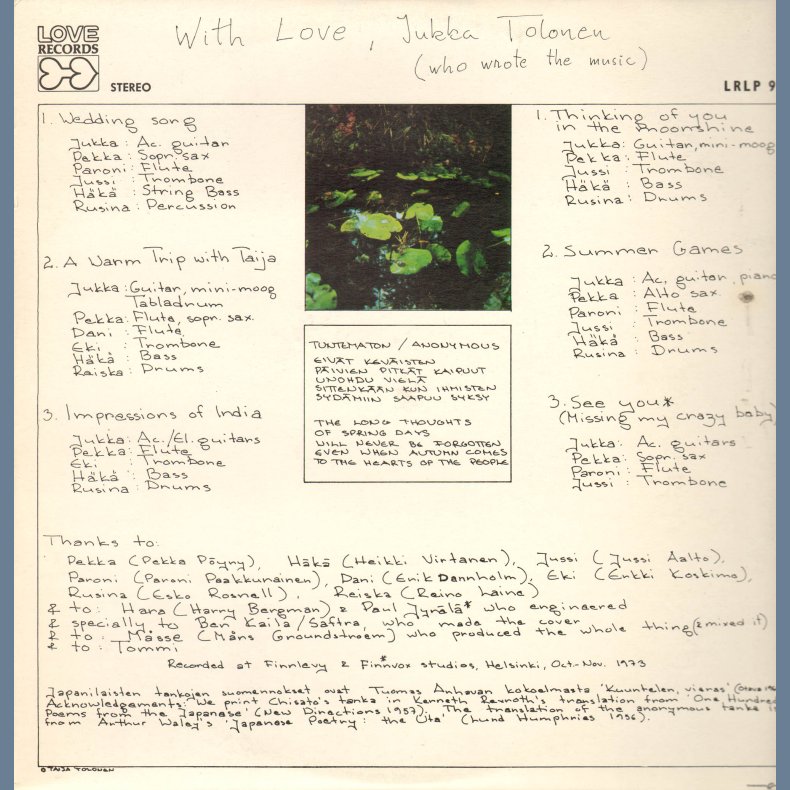 LOVE
RECORDS
STEREO
With Love, Jukka Tolonen
(who wrote the music)
LRLP 9
1. Wedding song
Jukka: Ac. guitar
Pekka: Sopr. sax
Paroni: Flute
Jussi: Trombone
Häkä: String Bass
Rusina: Percussion
2. A Warm Trip with Taija
Jukka: Guitar, mini-moog
Tabladrum
Pekka: Flute, sopr. sax.
Dani: Flute
Eki: Trombone
Häkä: Bass
Reiska: Drums
3. Impressions of India
Jukka: Ac./El. guitars
Pekka: Flute
Eki: Trombone
Häkä: Bass
Rusina: Drums
TUNTEMATON / ANONYMOUS
EIVÄT KEVÄISTEN
PÄIVIEN PITKÄT KAIPUUT
UNOHDU VIELÄ
SITTENKÄÄN KUN IHMISTEN
SYDÄMIIN SAAPUU SYKSY
THE LONG THOUGHTS
OF SPRING DAYS
WILL NEVER BE FORGOTTEN
EVEN WHEN AUTUMN COMES
TO THE HEARTS OF THE PEOPLE
1. Thinking of you
in the moonshine
Jukka: Guitar, mini-moog
Pekka: Flute
Jussi: Trombone
Häkä: Bass
Rusina: Drums
2. Summer Games
Jukka: Ac. guitar, piano
Pekka: Alto sax.
Paroni: Flute
Jussi: Trombone
Häkä: Bass
Rusina: Drums
3. See you*
(Missing my crazy baby)
Jukka: Ac. guitars
Pekka: Sopr. sax
Paroni: Flute
Jussi: Trombone
Thanks to:
Pekka (Pekka Pöyry), Häkä (Heikki Virtanen), Jussi (Jussi Aalto),
Paroni (Paroni Paakkunainen), Dani (Erik Dannholm), Eki (Erkki Koskimo),
Rusina (Esko Rosnell), Reiska (Reino Laine)
& to: Hara (Harry Bergman) & Paul Jyrälä* who engineered
& specially to Ben Kaila/Säftra, who made the cover
& to: Måsse (Måns Groundstroem) who produced the whole thing (& mixed it)
& to: Tommi
Recorded at Finnlevy & Finnvox* studios, Helsinki, Oct.-Nov. 1973
Japanilaisten tankojen suomennokset ovat Tuomas Anhavan kokoelmasta 'Kuuntelen, vieras' (Otava
Acknowledgements: We print Chisato's tanka in Kenneth Rexroth's translation from 'One Hundred
Poems from the Japanese' (New Directions 1957). The translation of the anonymous tanka is
from Arthur Waley's 'Japanese Poetry: the Uta' (Lund Humphries 1956).
© TAIJA TOLONEN